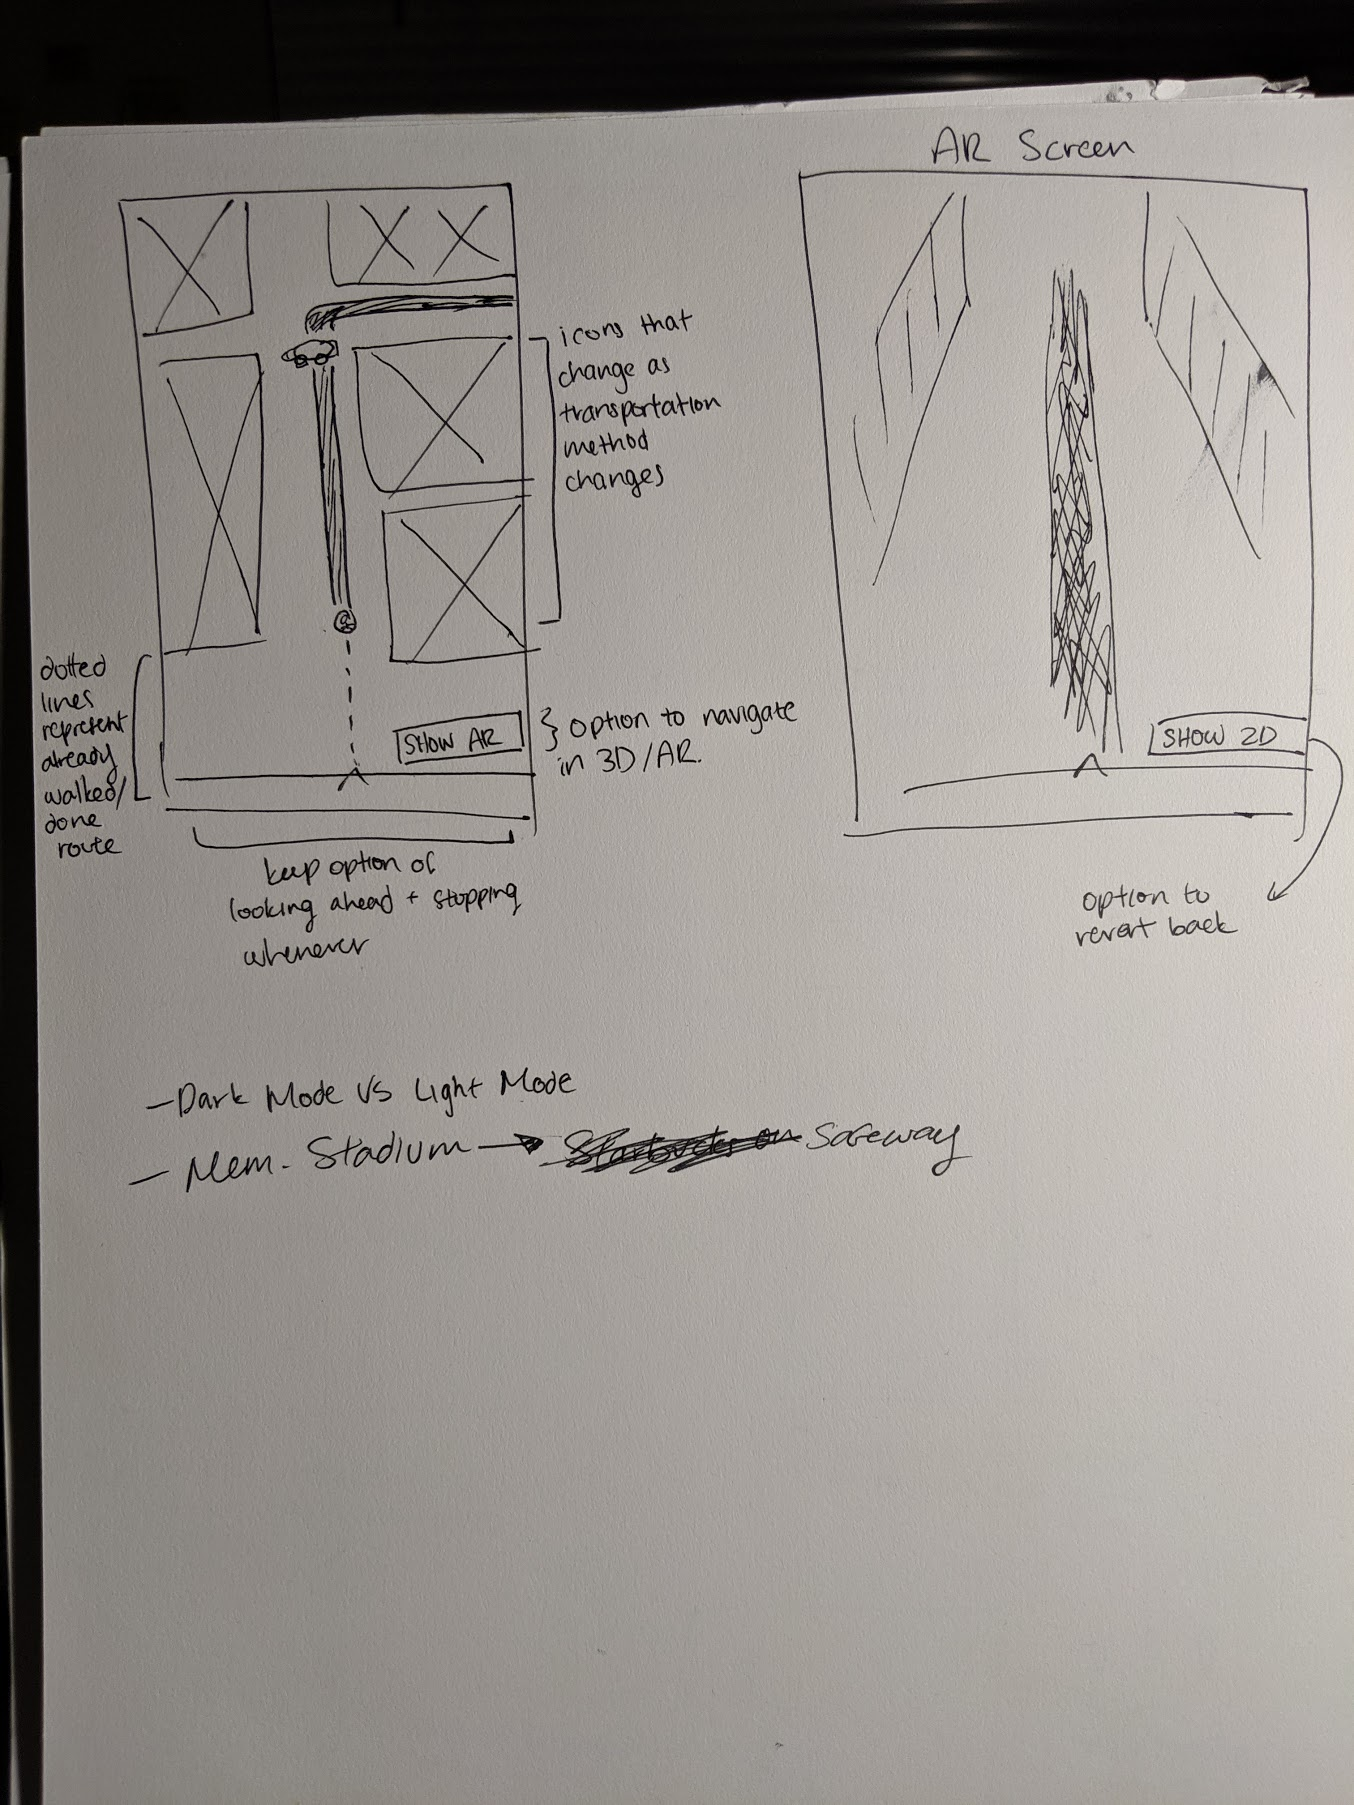 AR Screen
icons that
change as
transportation
method
changes
dotted
lines
represent
already
walked/
done
route
SHOW AR
option to navigate
in 3D/AR.
SHOW 2D
keep option of
looking ahead + stopping
whenever
option to
revert back
- Dark Mode vs Light Mode
- Mem. Stadium → Safeway